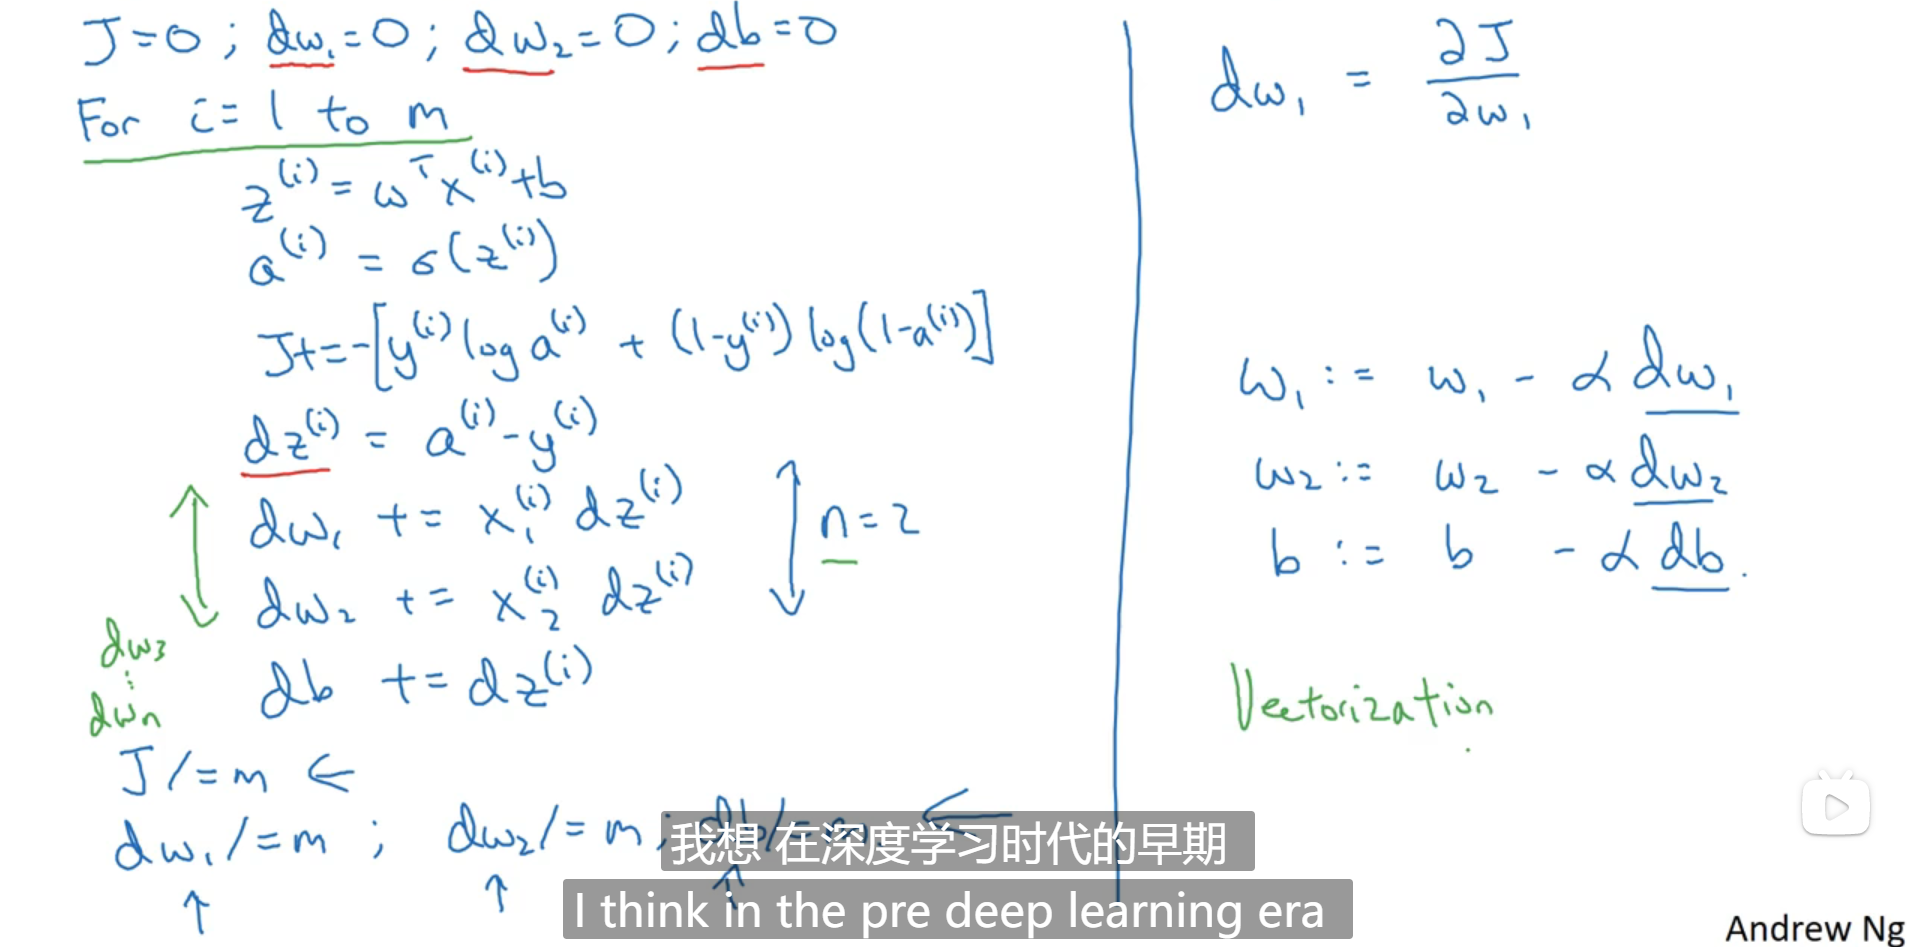 J=0 ; dw₁=0 ; dw₂=0 ; db=0
For i=1 to m
z⁽ⁱ⁾ = ωᵀx⁽ⁱ⁾+b
a⁽ⁱ⁾ = σ(z⁽ⁱ⁾)
J+=-[y⁽ⁱ⁾ log a⁽ⁱ⁾ + (1-y⁽ⁱ⁾) log(1-a⁽ⁱ⁾)]
dz⁽ⁱ⁾ = a⁽ⁱ⁾-y⁽ⁱ⁾
dw₁ += x₁⁽ⁱ⁾ dz⁽ⁱ⁾
dw₂ += x₂⁽ⁱ⁾ dz⁽ⁱ⁾
n=2
db += dz⁽ⁱ⁾
dw₃
⋮
dwₙ
J/=m ←
dw₁/=m ; dw₂/=m ; db/=m ←
dw₁ = ∂J/∂w₁
w₁ := w₁ - α dw₁
w₂ := w₂ - α dw₂
b := b - α db.
Vectorization
我想 在深度学习时代的早期
I think in the pre deep learning era
Andrew Ng